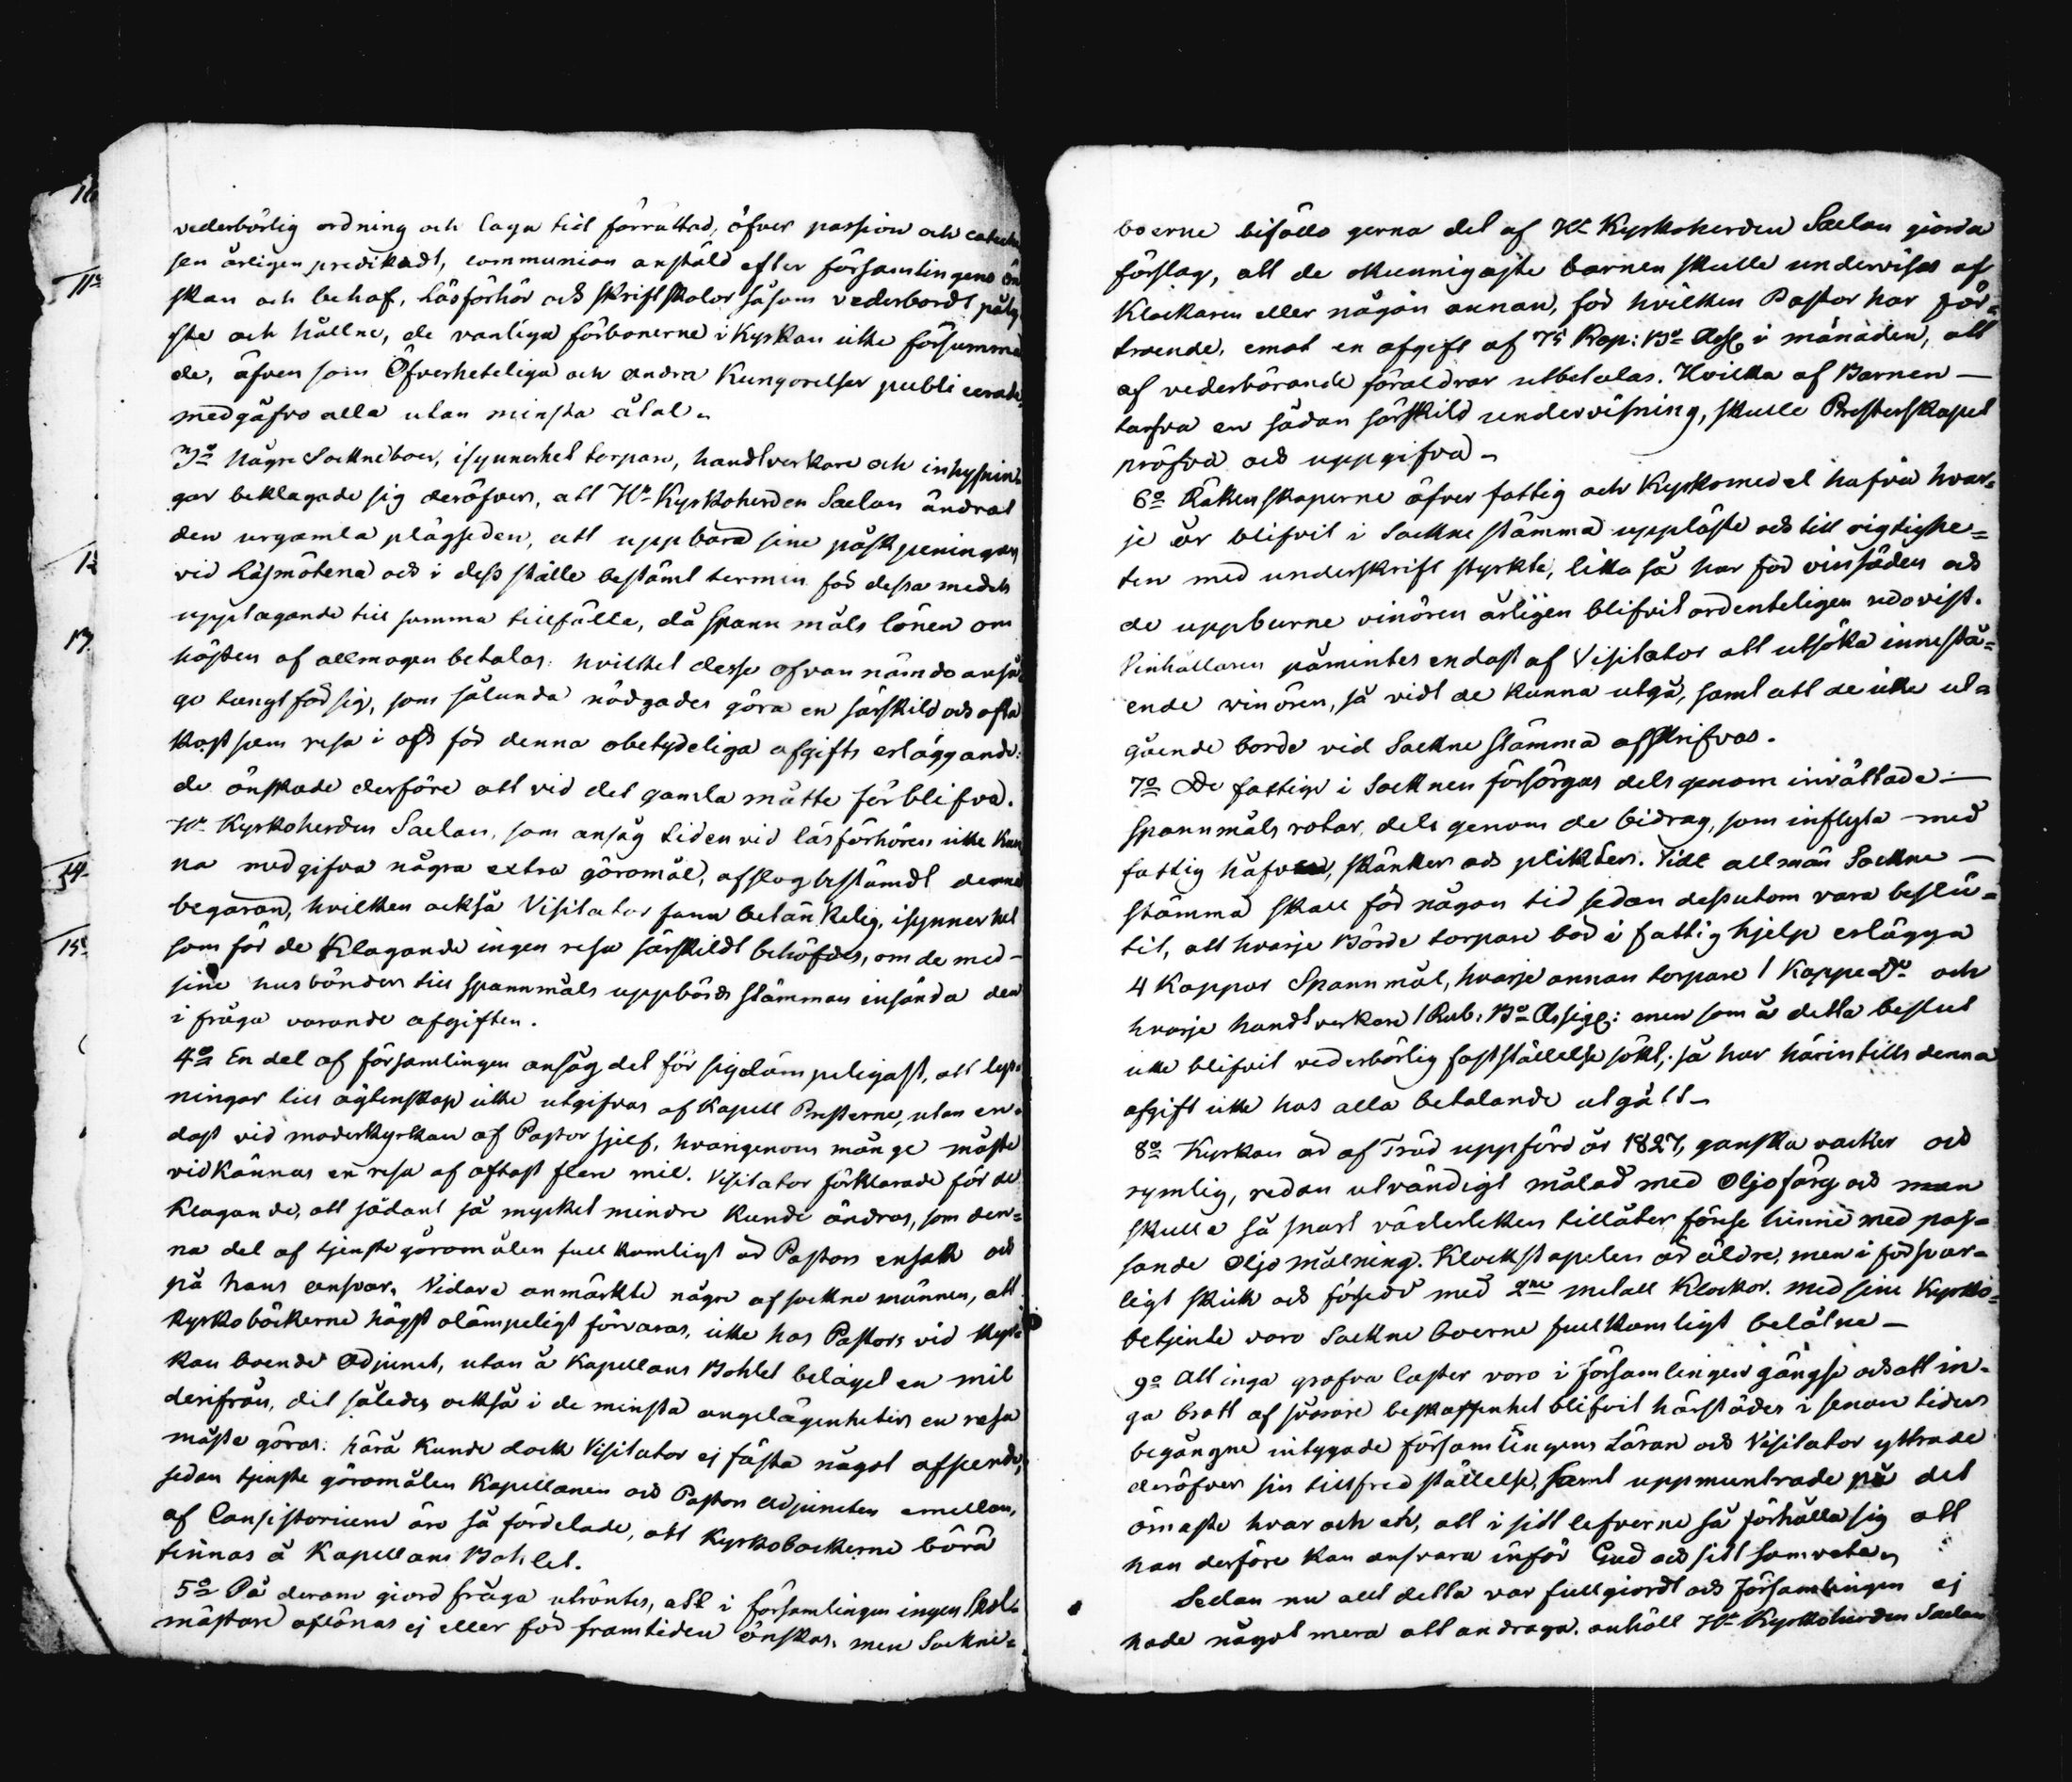 16
11º
12
13.
14.
15º
vederbörlig ordning och laga tid förrättad, öfver passion och cateche
sen årligen predikadt, communion anstäld efter församlingens ön
skan och behof, Läsförhör och skriftskolor såsom vederbordt pålys
ste och hållne, de vanliga förbönerne i Kyrkan icke försumma
de, äfven som Öfverheteliga och andra Kungörelser publicerade,
medgåfvo alla utan minsta åtal.
3º Några Socknéboer, isynnerhet torpare, handtverkare och inhysnin-
gar beklagade sig deröfver, att Hr Kyrkoherden Saelan ändrat
den urgamla plägseden, att uppbära sine påskpenningar
vid Läsmötena och i dess ställe bestämt termin för dessa medels
upptagande till samma tillfälle, då spannmåls lönen om
hösten af allmogen betalas: hvilket desse ofvannämde anså-
go tungt för sig, som sålunda nödgades göra en särskild och ofta
kostsam resa i och för denna obetydeliga afgifts erläggande:
de önskade derföre att vid det gamla måtte förblifva.
Hr Kyrkoherden Saelan, som ansåg tiden vid läsförhören icke kun
na medgifva några extra göromål, afslog bestämdt denna
begäran, hvilken också Visitator fann betänkelig, isynnerhet
som för de Klagande ingen resa särskildt behöfdes, om de med-
sine husbönder till spannmåls uppbörds stämman insända den
i fråga varande afgiften.
4º En del af församlingen ansåg det för sig olämpeligast, att lys-
ningar till ägtenskap icke utgifvas af Kapell Presterne, utan en-
dast vid moderkyrkan af Pastor sjelf, hvarigenom många måste
vidkännas en resa af oftast flere mil. Visitator förklarade för de
Klagande, att sådant så mycket mindre kunde ändras, som den-
na del af tjenste göromålen fullkomligt är Pastors ensak och
på hans ansvar. Vidare anmärkte några af sockne männen, att
kyrkoböckerne högst olämpeligt förvaras, icke hos Pastors vid kyr-
kan boende Adjunct, utan å Kapellans Bohlet beläget en mil
derifrån, dit således också i de minsta angelägenheter en resa
måste göras: härå kunde dock Visitator ej fästa något afseende,
sedan tjenste göromålen Kapellanen och Pastors Adjuncten emellan,
af Consistorium äro så fördelade, att Kyrkobockerne böra
finnas å Kapellans Bohlet.
5º På derom giord fråga utröntes, att i församlingen ingen Skol-
mästare aflönas ej eller för framtiden önskas, men Sockne-
boerne bifölle gerna det af Hr Kyrkoherden Saelan giorda
förslag, att de okunnigaste barnen skulle undervisas af
Klockaren eller någon annan, för hvilken Pastor har för-
troende, emot en afgift af 75 Kop: Bco Assg i månaden, att
af vederbörande föräldrar utbetalas. Hvilka af Barnen —
tarfva en sådan särskild undervisning, skulle Presterskapet
pröfva och uppgifva.
6º Räkenskaperne öfver fattig och Kyrkomedel hafva hvar-
je år blifvit i Sockne stämma uppläste och till rigtighe-
ten med underskrift styrkte, lika så har för vinsäden och
de uppburne vinören årligen blifvit ordenteligen redovist.
Vinhållaren påmintes endast af Visitator att utsöka innestå-
ende vinören, så vidt de kunna utgå, samt att de icke ut-
gående borde vid Sockne stämma afskrifvas.
7º De fattige i Socknen försörgas dels genom inrättade —
spannmåls rotar, dels genom de bidrag, som inflyta med
fattig håfven, skänker och plikter. Vid allmän Sockne —
stämma skall för någon tid sedan dessutom vara beslu-
tit, att hvarje Börde torpare bör i fattighjelp erlägga
4 Kappar Spannmål, hvarje annan torpare 1 Kappe Do och
hvarje handtverkare 1 Rub: Bco Assig: men som å detta beslut
icke blifvit vederbörlig fastställelse sökt, så har härintills denna
afgift icke hos alla betalande utgått —
8º Kyrkan är af Träd uppförd år 1827, ganska vacker och
rymlig, redan utvändigt målad med Oljofärg och man
skulle så snart väderleken tillåter förse hinne med pas-
sande Oljo målning. Klockstapelen är äldre, men i försvar-
ligt skick och försedd med 2ne metall Klockor. Med sine Kyrko-
betjente voro Sockneboerne fullkomligt belåtne —
9º Att inga grofva laster voro i församlingen gängse och att in-
ga brott af svårare beskaffenhet blifvit härstädes i senare tider
begångne intygade församlingens Läran och Visitator yttrade
deröfver sin tillfredställelse, samt uppmuntrade på det
ömaste hvar och en, att i sitt lefverne så förhålla sig att
han derföre kan ansvara inför Gud och sitt samvete.
Sedan nu allt detta var fullgiordt och församlingen ej
hade något mera att andraga, anhöll Hr Kyrkoherden Saelan